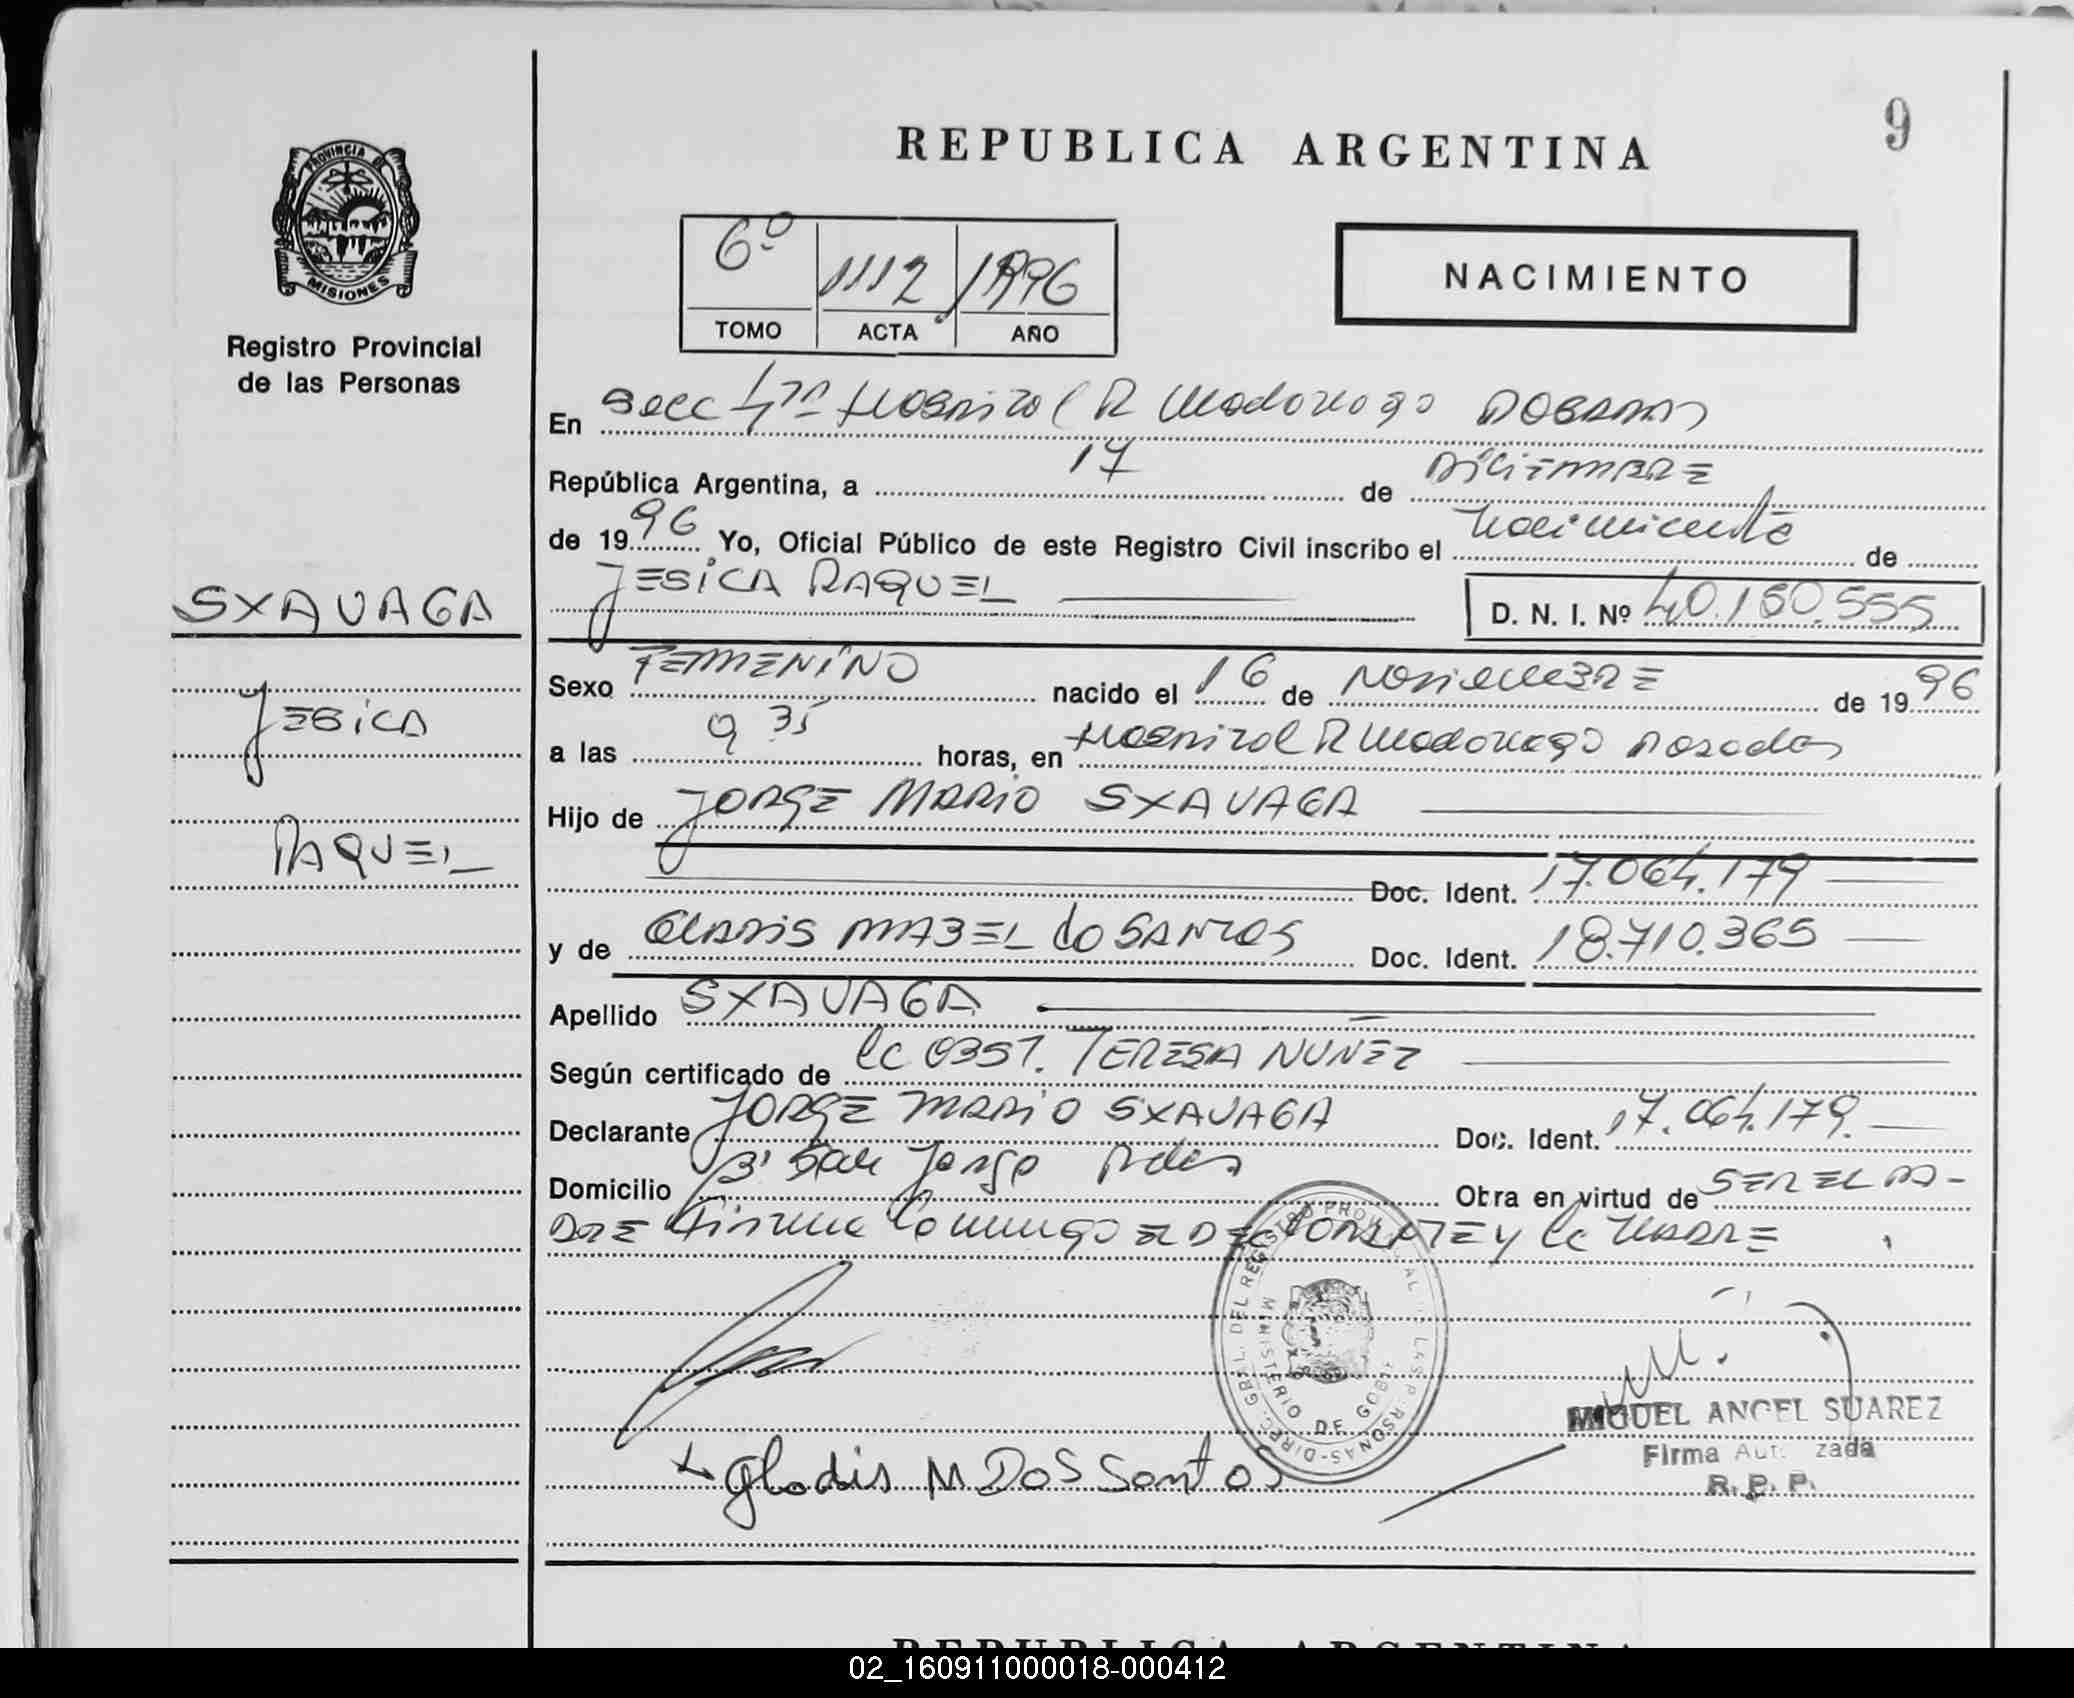 9
REPUBLICA ARGENTINA
PROVINCIA DE
MISIONES
Registro Provincial
de las Personas
6º 1112 1996
TOMO ACTA AÑO
NACIMIENTO
En Secc 4ta Hospital R Madariaga POSADAS
República Argentina, a 17 de DICIEMBRE
de 1996 Yo, Oficial Público de este Registro Civil inscribo el nacimiento de
JESICA RAQUEL D. N. I. Nº 40.150.555
SXAVAGA
JESICA
RAQUEL
Sexo FEMENINO nacido el 16 de NOVIEMBRE de 1996
a las 9 35 horas, en Hospital R Madariaga Posadas
Hijo de JORGE MARIO SXAVAGA
Doc. Ident. 17.064.179
y de GLADIS MABEL do SANTOS Doc. Ident. 18.710.365
Apellido SXAVAGA
Según certificado de la OBST. TERESA NUNEZ
Declarante JORGE MARIO SXAVAGA Doc. Ident. 17.064.179.
Domicilio Bº San Jorge Pdas Obra en virtud de SER EL PA-
DRE Firman Conmigo EL DECLARANTE y la MADRE
DIREC. GRAL. DEL REGISTRO PROVINCIAL LAS PERSONAS
MINISTERIO DE GOB
Gladis M Dos Santos
MIGUEL ANGEL SUAREZ
Firma Autorizada
R. P. P.
REPUBLICA ARGENTINA
02_160911000018-000412